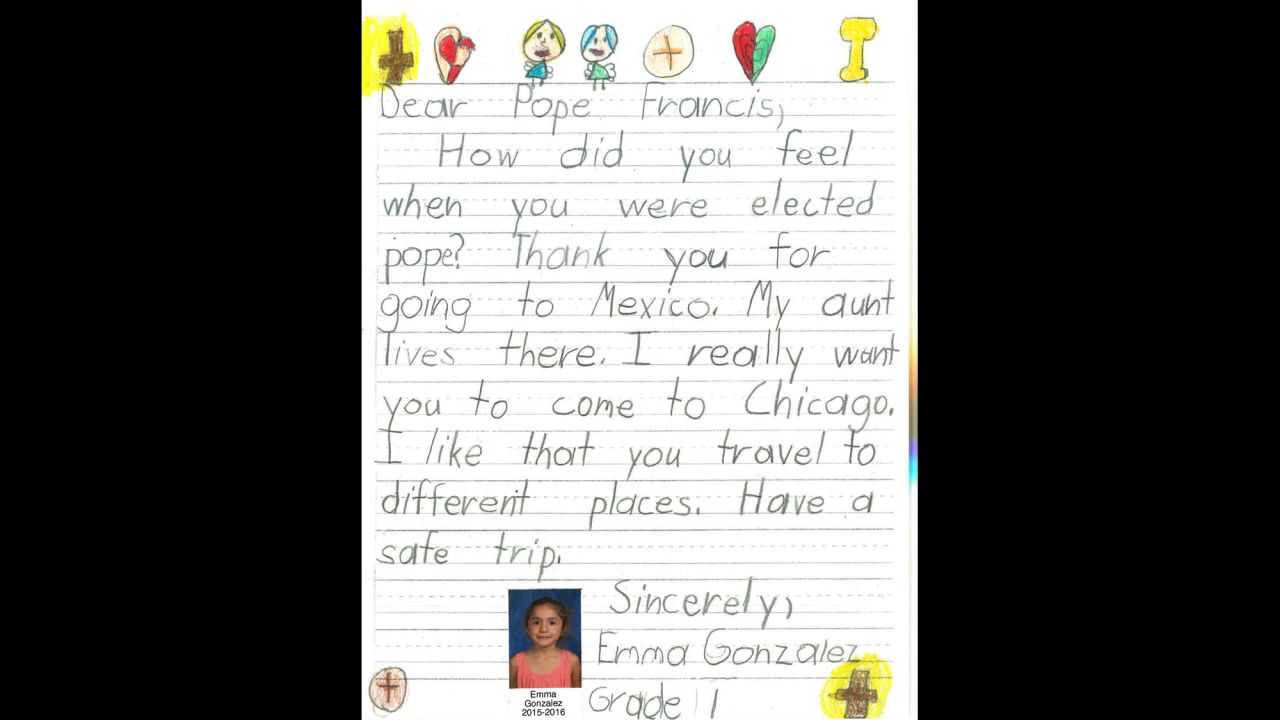 Dear Pope Francis,
How did you feel
when you were elected
pope? Thank you for
going to Mexico. My aunt
lives there. I really want
you to come to Chicago.
I like that you travel to
different places. Have a
safe trip.
Sincerely,
Emma Gonzalez
Grade 1
Emma
Gonzalez
2015-2016